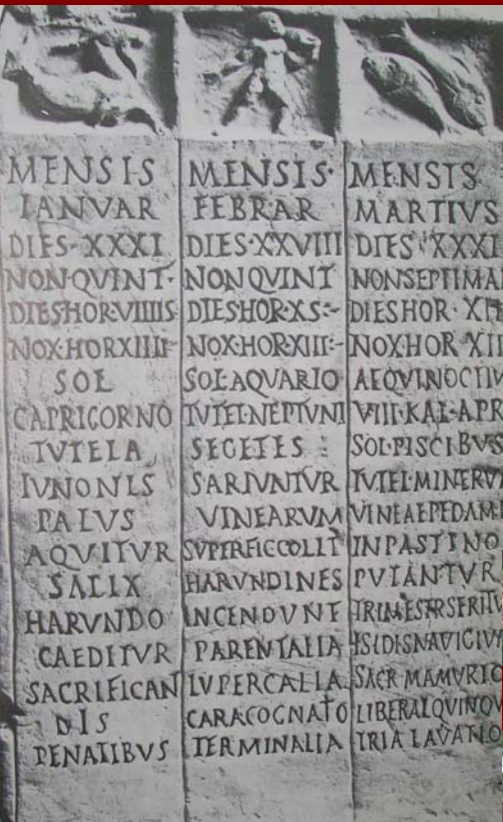 MENSIS
IANVAR
DIES·XXXI
NON·QVINT·
DIES·HOR·VIIIIS
NOX·HOR·XIIII-
SOL
CAPRICORNO
TVTELA
IVNONIS
PALVS
AQVITVR
SALIX
HARVNDO
CAEDITVR
SACRIFICAN
DIS
PENATIBVS
MENSIS·
FEBRAR
DIES·XXVIII
NON·QVINT
DIES·HOR·XS:-
NOX·HOR·XIII:-
SOL·AQVARIO
TVTEL·NEPTVNI
SEGETES
SARIVNTVR
VINEARVM
SVPERFIC·COLIT
HARVNDINES
INCENDVNT
PARENTALIA
LVPERCALIA
CARA·COGNATO
TERMINALIA
MENSIS
MARTIVS
DIES·XXXI
NON·SEPTIMA
DIES·HOR·XII
NOX·HOR·XII
AEQVINOCTIV
VIII·KAL·APR
SOL·PISCIBVS
TVTEL·MINERV
VINEAE·PEDAM
IN·PASTINO
PVTANTVR
TRIMESTR·SERITV
ISIDIS·NAVIGIV
SACR·MAMVRIO
LIBERAL·QVINQV
TRIA·LAVATIO